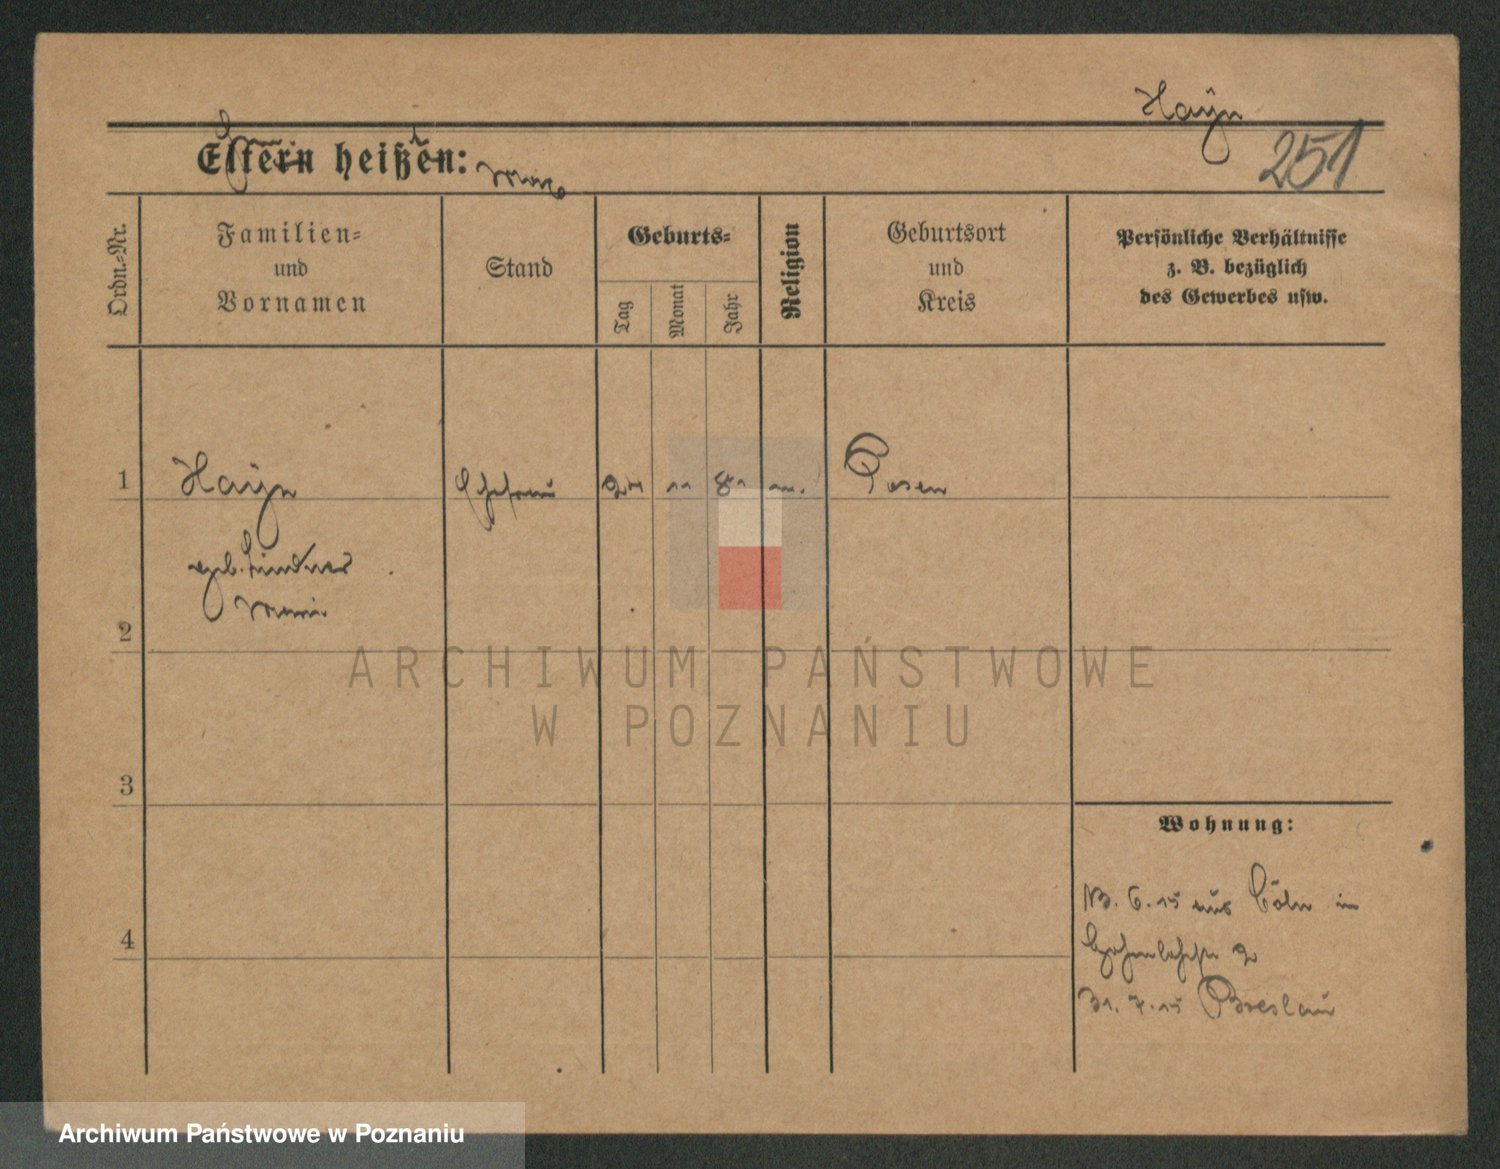 Hayn
251
Eltern heißen:
Ordn.-Nr.
Familien-
und
Vornamen
Stand
Geburts-
Tag
Monat
Jahr
Religion
Geburtsort
und
Kreis
Persönliche Verhältnisse
z. B. bezüglich
des Gewerbes usw.
1
Hayn
Ehefrau
Posen
geb. Lindner
2
ARCHIWUM PAŃSTWOWE
W POZNANIU
3
Wohnung:
6. 15 aus Cöln in
4
31. 7. 15 Breslau
Archiwum Państwowe w Poznaniu